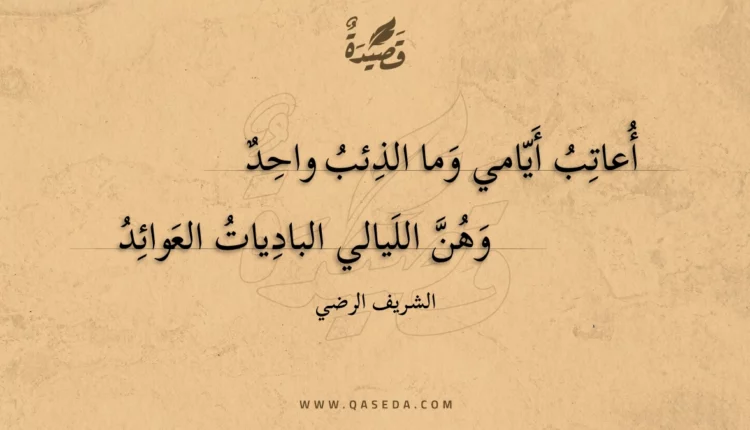 قَصِيْدَةٌ
أُعاتِبُ أَيّامي وَما الذِئبُ واحِدٌ
وَهُنَّ اللَيالي البادِياتُ العَوائِدُ
الشريف الرضي
WWW.QASEDA.COM